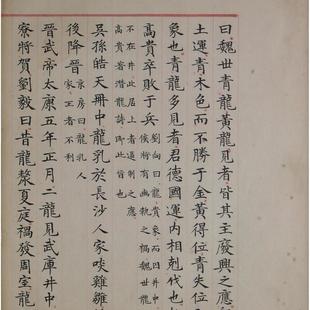 曰魏世青龍黃龍見者皆其主廢興之應
土運青木色而不勝于金黃得位青失位
象也青龍多見者君德國運內相剋伐也
高貴卒敗于兵劉向曰龍貴象而困井中
侯將有幽執之禍魏世龍
不在井此居上者逼制之
高貴著潛龍詩卽此旨也
吳孫皓天冊中龍乳於長沙人家啖雞雛
後降晉京房曰龍乳人
家王者不利
晉武帝太康五年正月二龍見武庫井中
寮將賀劉毅曰昔龍漦夏庭禍發周室龍